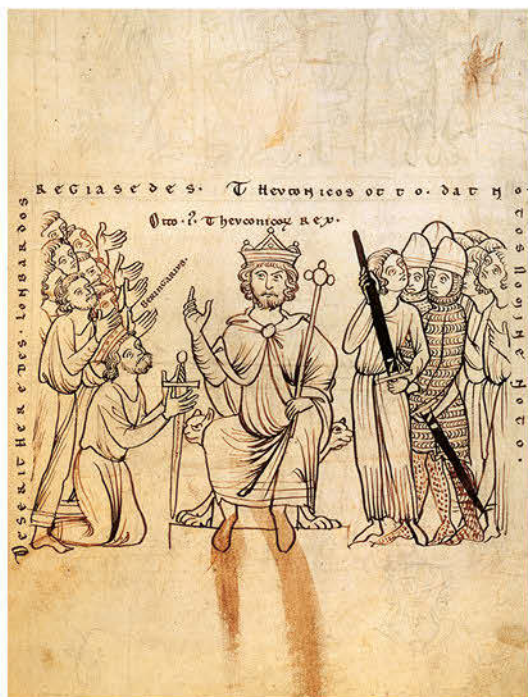 Deserit heredes. Lonbardos
Regia sedes. Theutonicos Otto. dat no
tos nomine noto.
Otto. I. Theutonicoꝝ rex.
Beringarius.